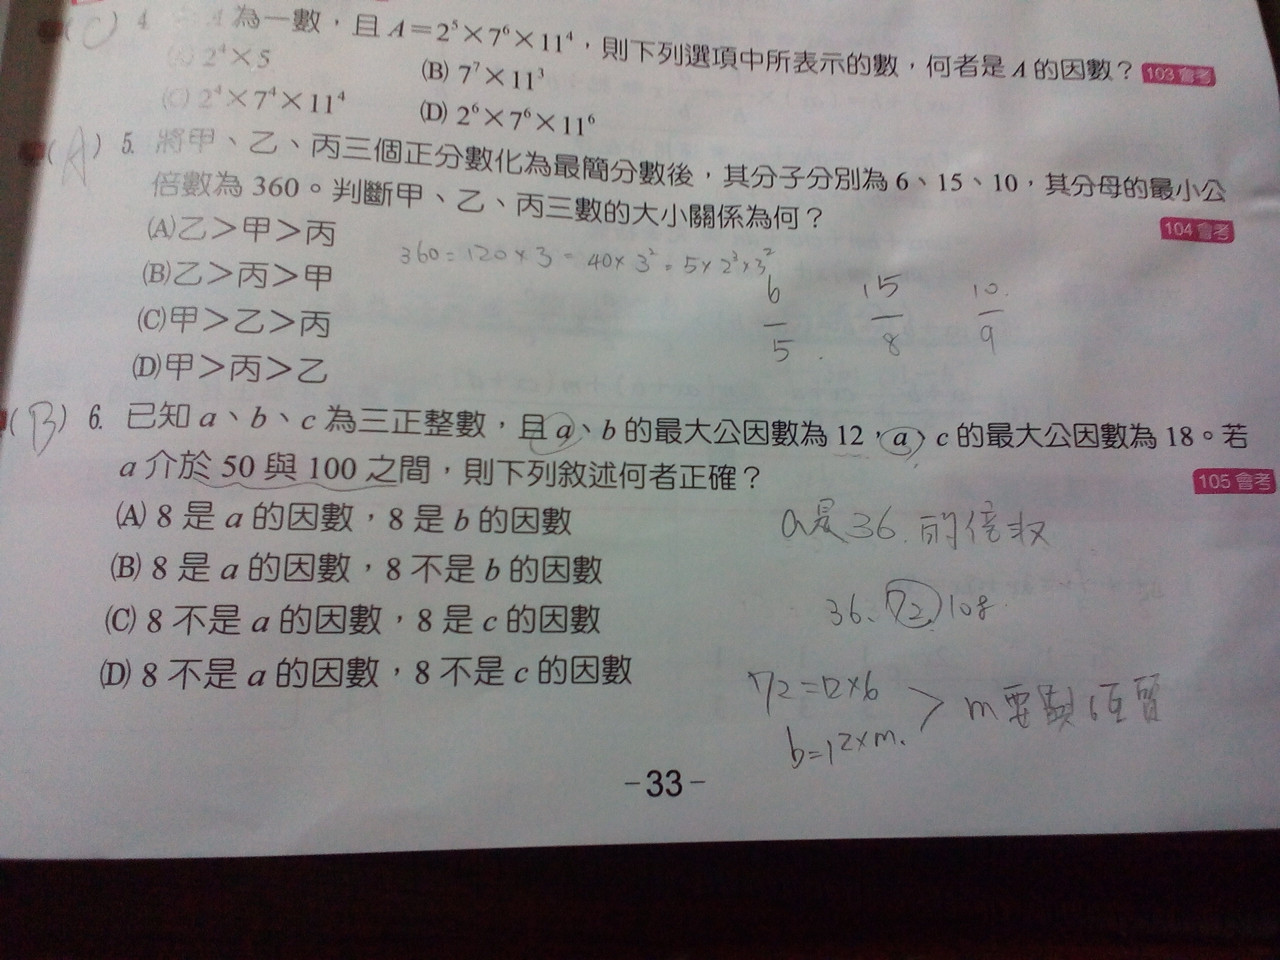 (C) 4. A為一數，且A=2⁵×7⁶×11⁴，則下列選項中所表示的數，何者是A的因數？ 103會考
(A) 2⁴×5 (B) 7⁷×11³
(C) 2⁴×7⁴×11⁴ (D) 2⁶×7⁶×11⁶
(A) 5. 將甲、乙、丙三個正分數化為最簡分數後，其分子分別為6、15、10，其分母的最小公
倍數為360。判斷甲、乙、丙三數的大小關係為何？ 104會考
(A)乙＞甲＞丙
360=120×3=40×3²=5×2³×3²
(B)乙＞丙＞甲
6/5 15/8 10/9
(C)甲＞乙＞丙
(D)甲＞丙＞乙
(B) 6. 已知a、b、c為三正整數，且a、b的最大公因數為12，a、c的最大公因數為18。若
a介於50與100之間，則下列敘述何者正確？ 105會考
(A) 8是a的因數，8是b的因數
a是36的倍数
(B) 8是a的因數，8不是b的因數
(C) 8不是a的因數，8是c的因數
36、72、108
(D) 8不是a的因數，8不是c的因數
72=12×6
b=12×m. > m要與6互質
-33-